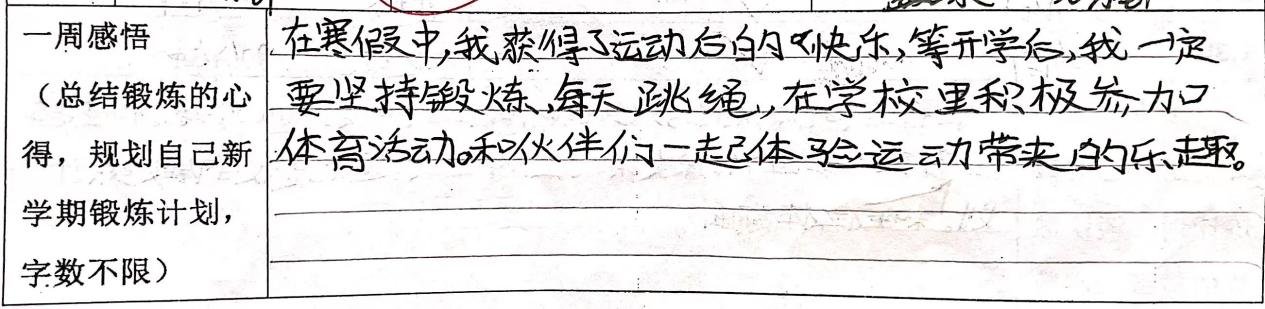 一周感悟
（总结锻炼的心
得，规划自己新
学期锻炼计划，
字数不限）
在寒假中,我获得了运动后的快乐,等开学后,我一定
要坚持锻炼,每天跳绳,在学校里积极参加
体育活动。和伙伴们一起体验运动带来的乐趣。